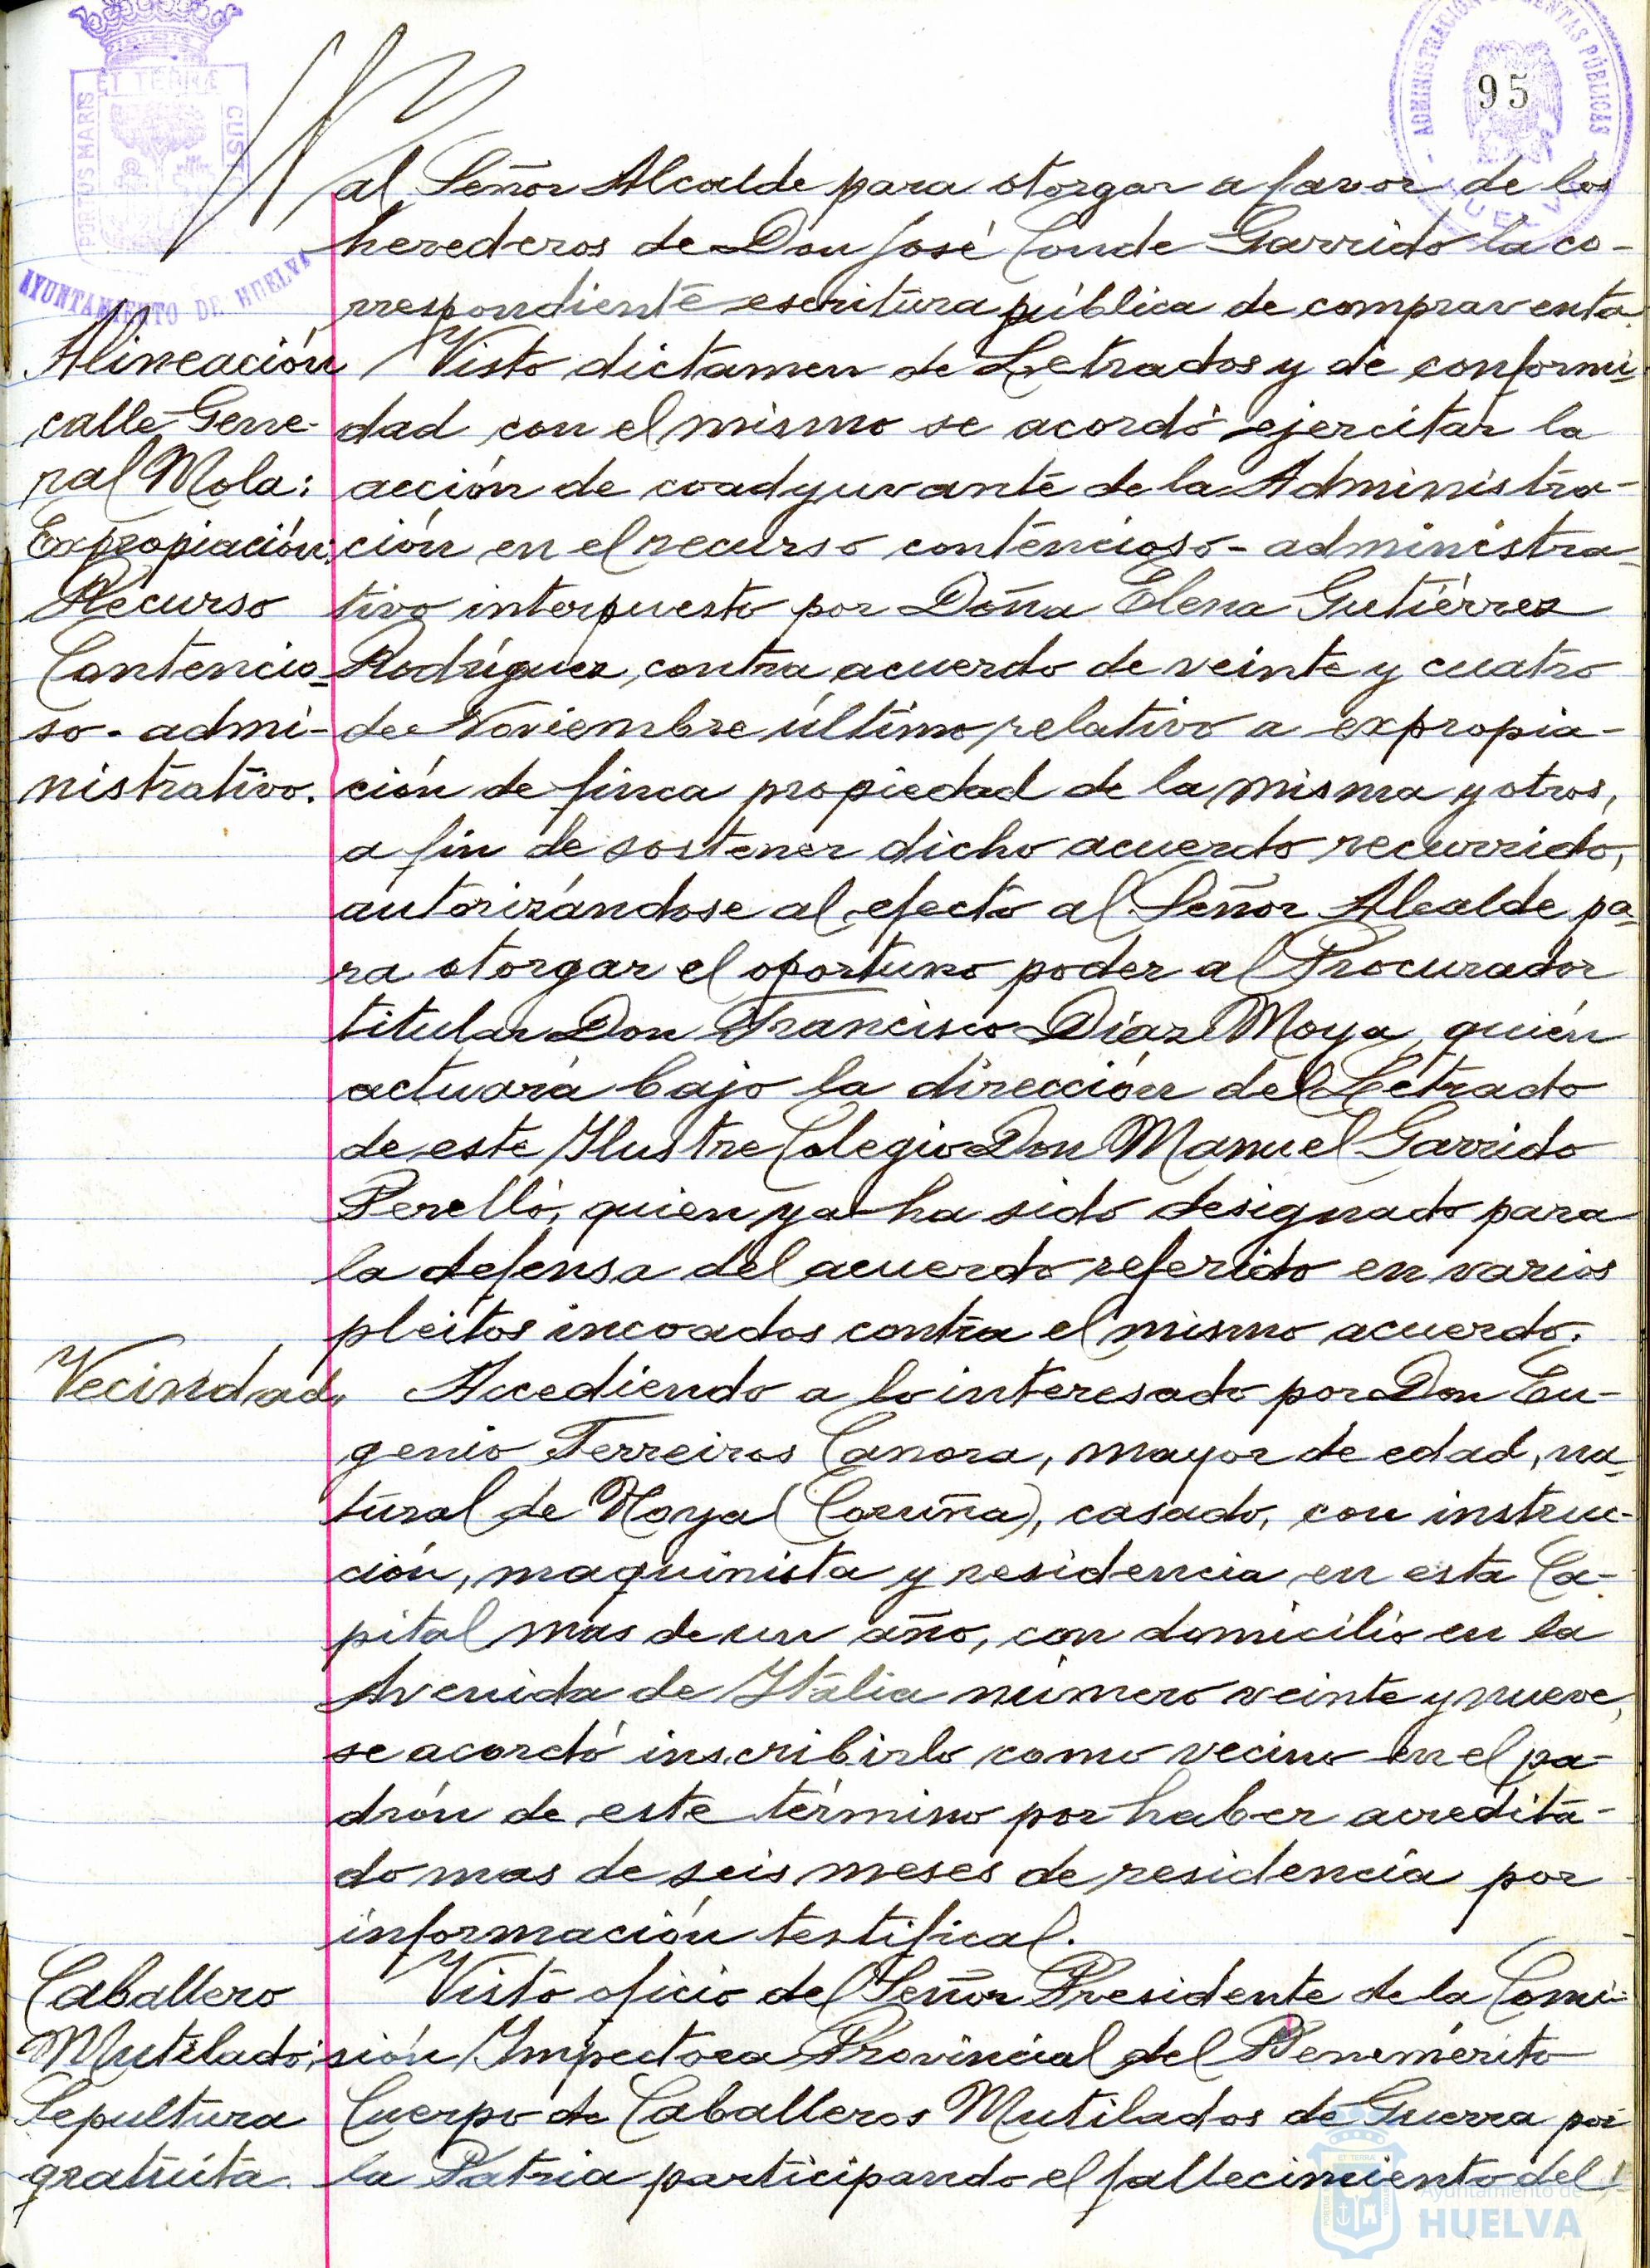 95
PORTUS MARIS ET TERRÆ CUSTODIA
AYUNTAMIENTO DE HUELVA
ADMINISTRACIÓN DE RENTAS PÚBLICAS
HUELVA
al Señor Alcalde para otorgar a favor de los
herederos de Don José Conde Garrido la co-
rrespondiente escritura pública de compraventa.
Alineación
calle Gene-
ral Mola:
Expropiación:
Recurso
Contencio-
so-admi-
nistrativo.
Visto dictamen de Letrados y de conformi-
dad con el mismo se acordó ejercitar la
acción de coadyuvante de la Administra-
ción en el recurso conténcioso-administra-
tivo interpuesto por Doña Elena Gutiérrez
Rodríguez, contra acuerdo de veinte y cuatro
de Noviembre último, relativo a expropia-
ción de finca propiedad de la misma y otros,
a fin de sostener dicho acuerdo recurrido,
autorizándose al efecto al Señor Alcalde pa-
ra otorgar el oportuno poder al Procurador
titular Don Francisco Díaz Moya, quién
actuará bajo la dirección del Letrado
de este Ilustre Colegio Don Manuel Garrido
Perelló, quien ya ha sido designado para
la defensa del acuerdo referido en varios
pleitos incoados contra el mismo acuerdo.
Vecindad.
Accediendo a lo interesado por Don Eu-
genio Terreiros Canora, mayor de edad, na-
tural de Noya (Coruña), casado, con instruc-
ción, maquinista y residencia en esta Ca-
pital mas de un año, con domicilio en la
Avenida de Italia número veinte y nueve,
se acordó inscribirlo como vecino en el pa-
drón de este término por haber acredita-
do mas de seis meses de residencia por
información testifical.
Caballero
Mutilado;
Sepultura
gratuita.
Visto oficio del Señor Presidente de la Comi-
sión Inspectora Provincial del Benemérito
Cuerpo de Caballeros Mutilados de Guerra por
la Patria participando el fallecimiento del
Ayuntamiento de
HUELVA